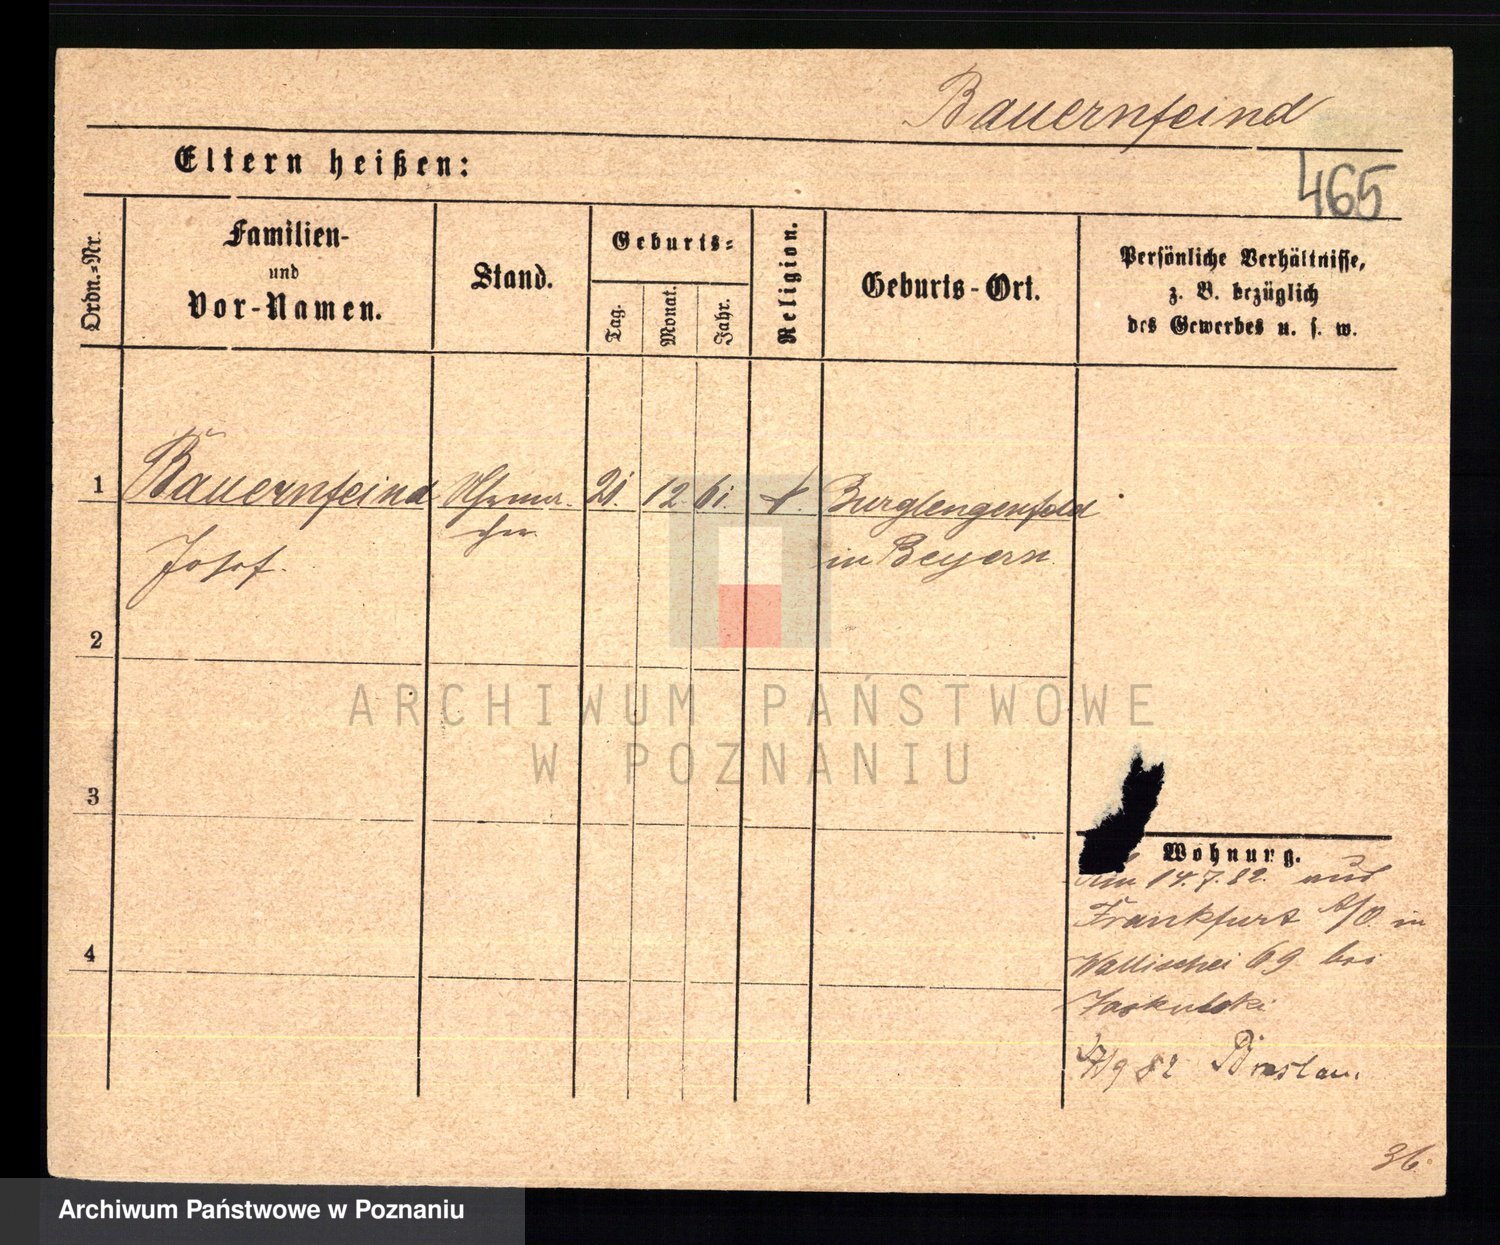 Bauernfeind
Eltern heißen:
465
Ordn.=Nr.
Familien-
und
Vor-Namen.
Stand.
Geburts=
Tag.
Monat.
Jahr.
Religion.
Geburts-Ort.
Persönliche Verhältnisse,
z. B. bezüglich
des Gewerbes u. s. w.
1
Bauernfeind
Josef.
Uhrma-
cher
21. 12 61.
Burglengenfeld
in Beyern
2
3
4
Wohnung.
Am 14.7.82. aus
Frankfurt a/O. in
Wallischei 69 bei
Jaskulski
9 82 Breslau.
36.
ARCHIWUM PAŃSTWOWE
W POZNANIU
Archiwum Państwowe w Poznaniu